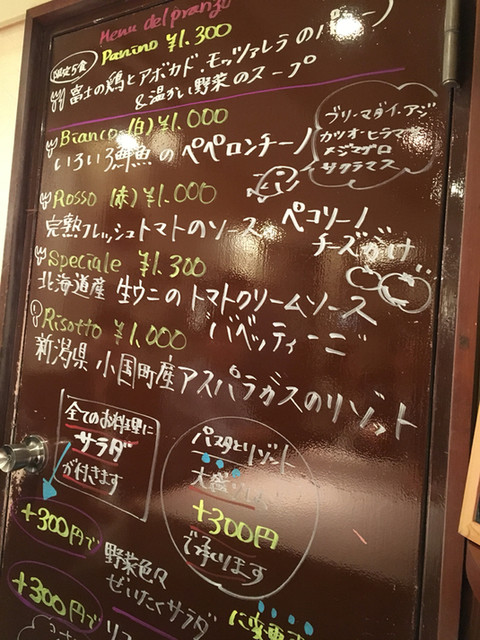 Menu del pranzo
限定5食
Panino ¥1.300
富士の鶏とアボカド モッツァレラの
&温かい野菜のスープ
Bianco (白) ¥1.000
いろいろ鮮魚のペペロンチーノ
ブリ・マダイ・アジ
カツオ・ヒラマサ
メジマグロ
サクラマス
Rosso (赤) ¥1.000
完熟フレッシュトマトのソース
ペコリーノ
チーズがけ
Speciale ¥1.300
北海道産 生ウニのトマトクリームソース
バベッティーニ
Risotto ¥1.000
新潟県 小国町産アスパラガスのリゾット
全てのお料理に
サラダ
が付きます
パスタとリゾット
大盛り
+300円
で承ります
+300円で
野菜色々
ぜいたくサラダ
に変更
+300円で